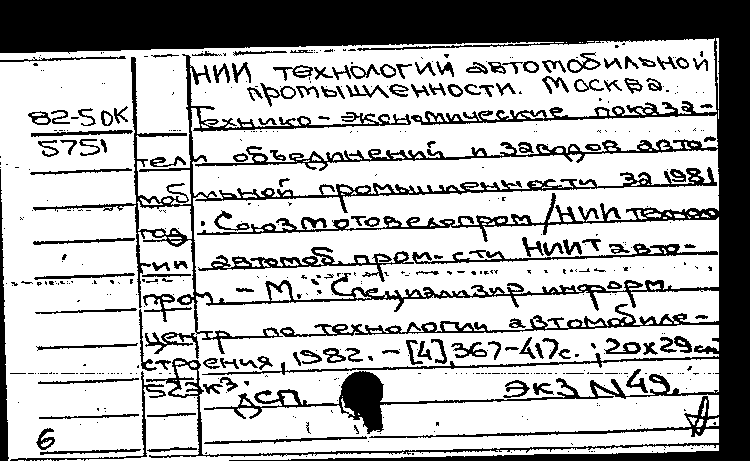 НИИ технологии автомобильной
промышленности. Москва.
82-5ДК
5751
Технико-экономические показа-
тели объединений и заводов авто-
мобильной промышленности за 1981
год : Союзмотовелопром / НИИ техноло
гии автомоб. пром-сти НИИТавто-
пром. - М. : Специализир информ.
центр по технологии автомобиле-
строения, 1982. - [4], 367-417с. ; 20х29см
52экз.
ДСП.
экз N49.
6